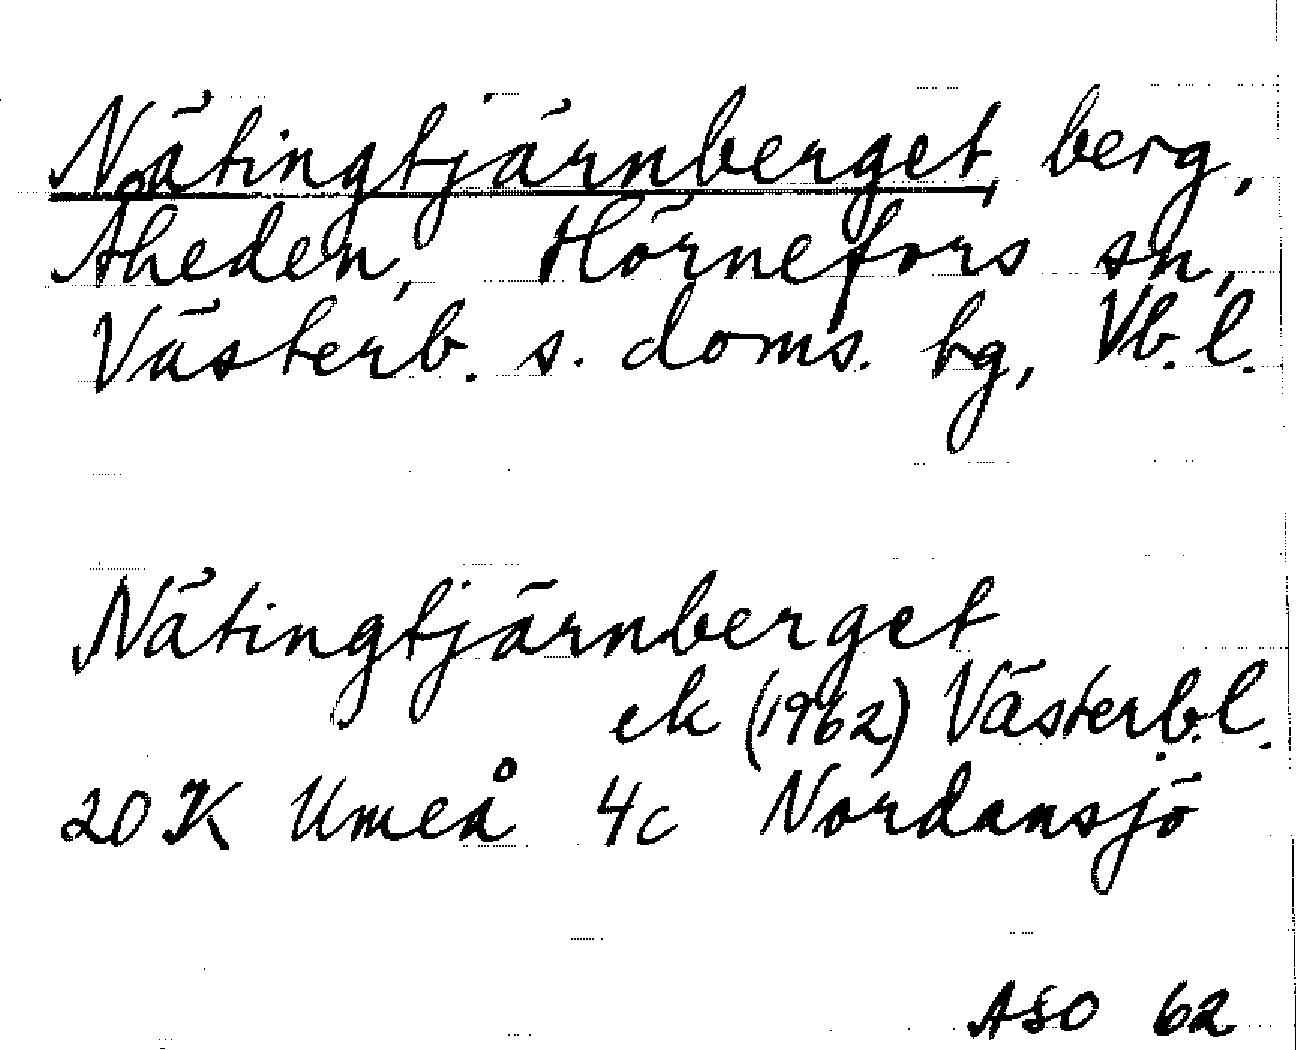 Nätingtjärnberget, berg,
Åheden, Hörnefors sn,
Västerb. s. doms. tg, Vb. l.
Nätingtjärnberget
ek (1962) Västerb. l.
20 K Umeå 4c Nordansjö
ASO 62